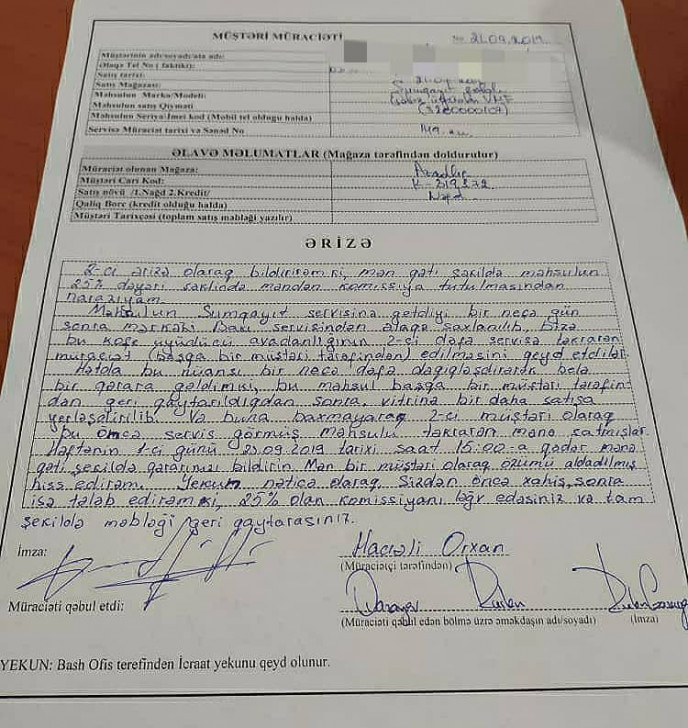 MÜŞTƏRİ MÜRACİƏTİ
№ 21.09.2019
Müştərinin adı/soyadı/ata adı:
Əlaqə Tel No ( faktiki):
Satış tarixi:
Satış Mağazası: Sumqayıt
Məhsulun Marka/Modeli:
Məhsulun satış Qiyməti
Məhsulun Seriya/İmei kod (Mobil tel olduğu halda) (3280000107)
Servisə Müraciət tarixi və Sənəd No
ƏLAVƏ MƏLUMATLAR (Mağaza tərəfindən doldurulur)
Müraciət olunan Mağaza:
Müştəri Cari Kod: K-219372
Satış növü /1.Nağd 2.Kredit/ Nəğd
Qalıq Borc (kredit olduğu halda)
Müştəri Tarixçəsi (toplam satış məbləği yazılır)
ƏRİZƏ
2-ci ərizə olaraq bildirirəmki, mən qəti şəkildə məhsulun
25% dəyəri şəklində məndən komissiya tutulmasından
narazıyam.
Məhsulun Sumqayıt servisinə getdiyi bir neçə gün
sonra mərkəzi Bakı servisindən əlaqə saxlanılıb, bizə
bu kofe üyüdücü avadanlığının 2-ci dəfə servisə təkrarən
müraciət (başqa bir müştəri tərəfindən) edilməsini qeyd etdilər.
Hətda bu nüansı bir neçə dəfə dəqiqləşdirərək belə
bir qərara gəldimki, bu məhsul başqa bir müştəri tərəfin-
dən geri qaytarıldıqdan sonra, vitrinə bir daha satışa
yerləşdirilib. Və buna baxmayaraq 2-ci müştəri olaraq
bu öncə servis görmüş məhsulu təkrarən mənə satmışlar.
Həftənin 1-ci günü 23.09.2019 tarixi saat 15:00-a qədər mənə
qəti şəkildə qərarınızı bildirin. Mən bir müştəri olaraq özümü aldadılmış
hiss edirəm. Yekun nəticə olaraq Sizdən öncə xahiş, sonra
isə tələb edirəmki, 25% olan komissiyanı ləğv edəsiniz və tam
şəkildə məbləği geri qaytarasınız.
İmza: Hacıəli Orxan
(Müraciətçi tərəfindən)
Müraciəti qəbul etdi:
(Müraciəti qəbul edən bölmə üzrə əməkdaşın adı/soyadı) (İmza)
YEKUN: Bash Ofis terefinden İcraat yekunu qeyd olunur.